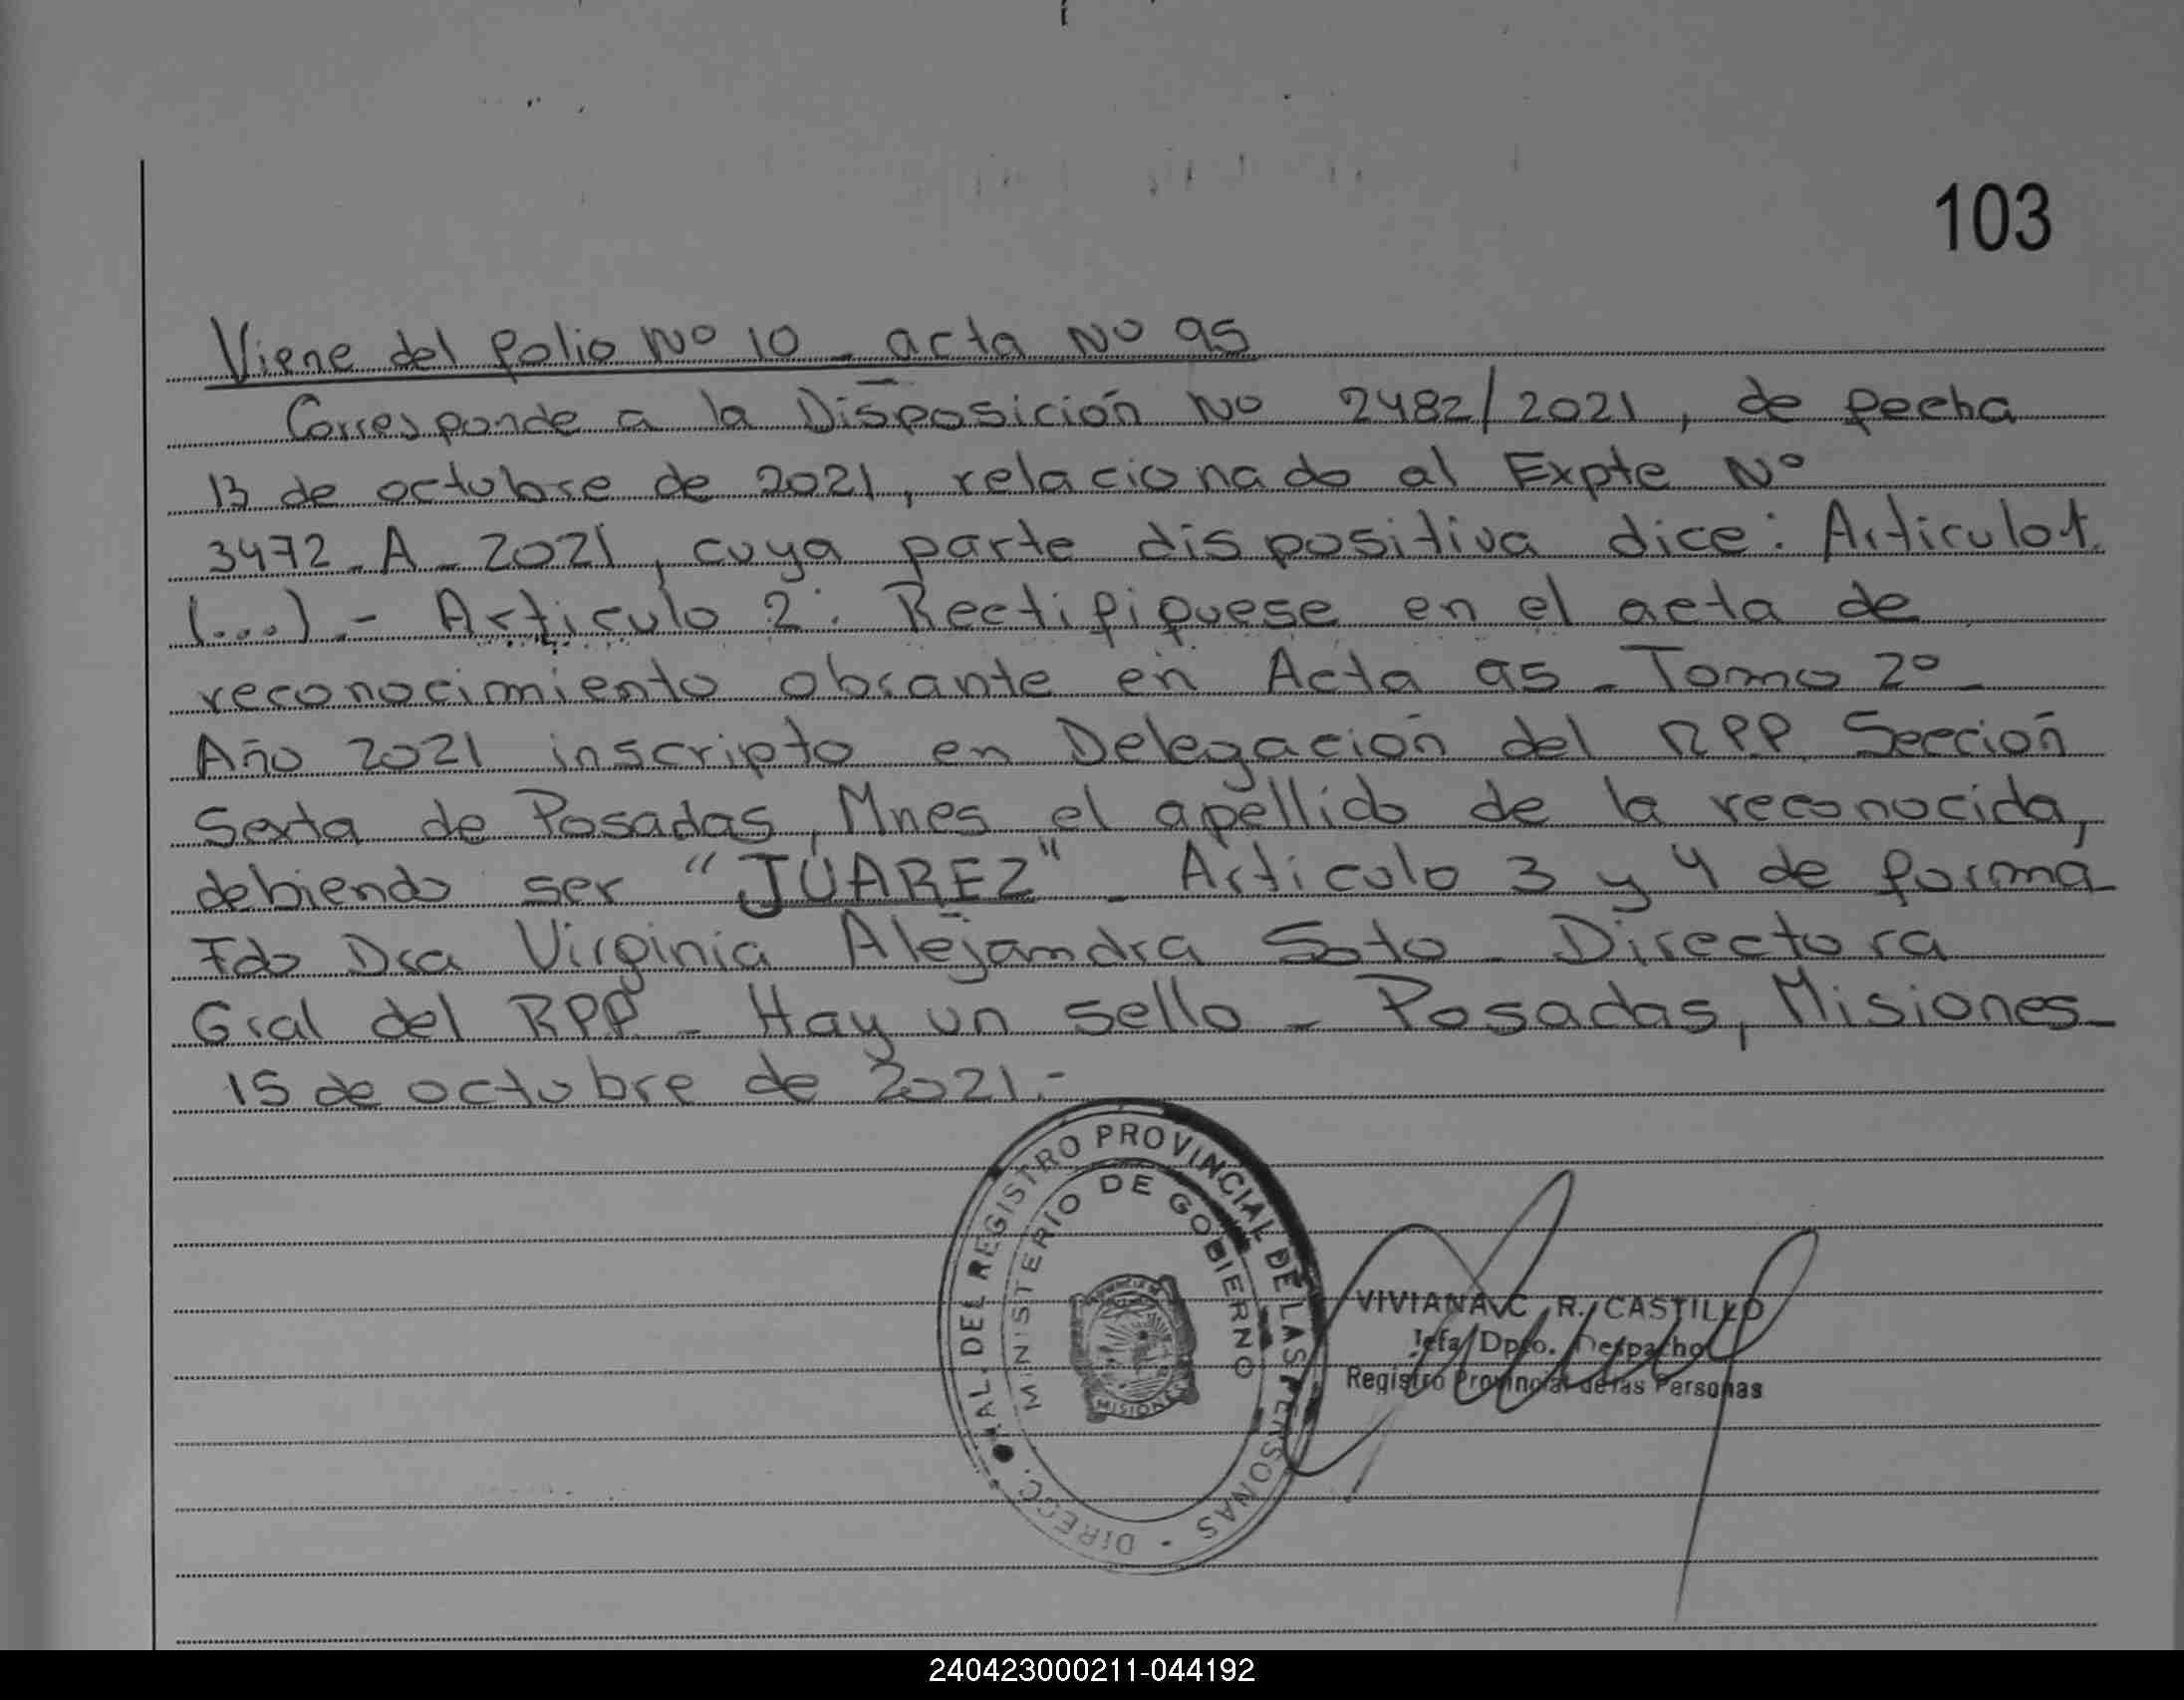 103
Viene del folio Nº 10 - acta Nº 95
Corresponde a la Disposición Nº 2482/2021, de fecha
13 de octubre de 2021, relacionado al Expte Nº
3472-A-2021, cuya parte dispositiva dice: Articulo 1.
(...).- Articulo 2: Rectifiquese en el acta de
reconocimiento obrante en Acta 95 - Tomo 2º -
Año 2021 inscripto en Delegación del RPP Sección
Sexta de Posadas, Mnes el apellido de la reconocida,
debiendo ser "JUAREZ" - Articulo 3 y 4 de forma -
Fdo Dra Virginia Alejandra Soto - Directora
Gral del RPP - Hay un sello - Posadas, Misiones -
15 de octubre de 2021.-
DIRECC. GRAL. DEL REGISTRO PROVINCIAL DE LAS PERSONAS -
MINISTERIO DE GOBIERNO
MISIONES
VIVIANA C. R. CASTILLO
Jefa Dpto. Despacho
Registro Provincial de las Personas
240423000211-044192